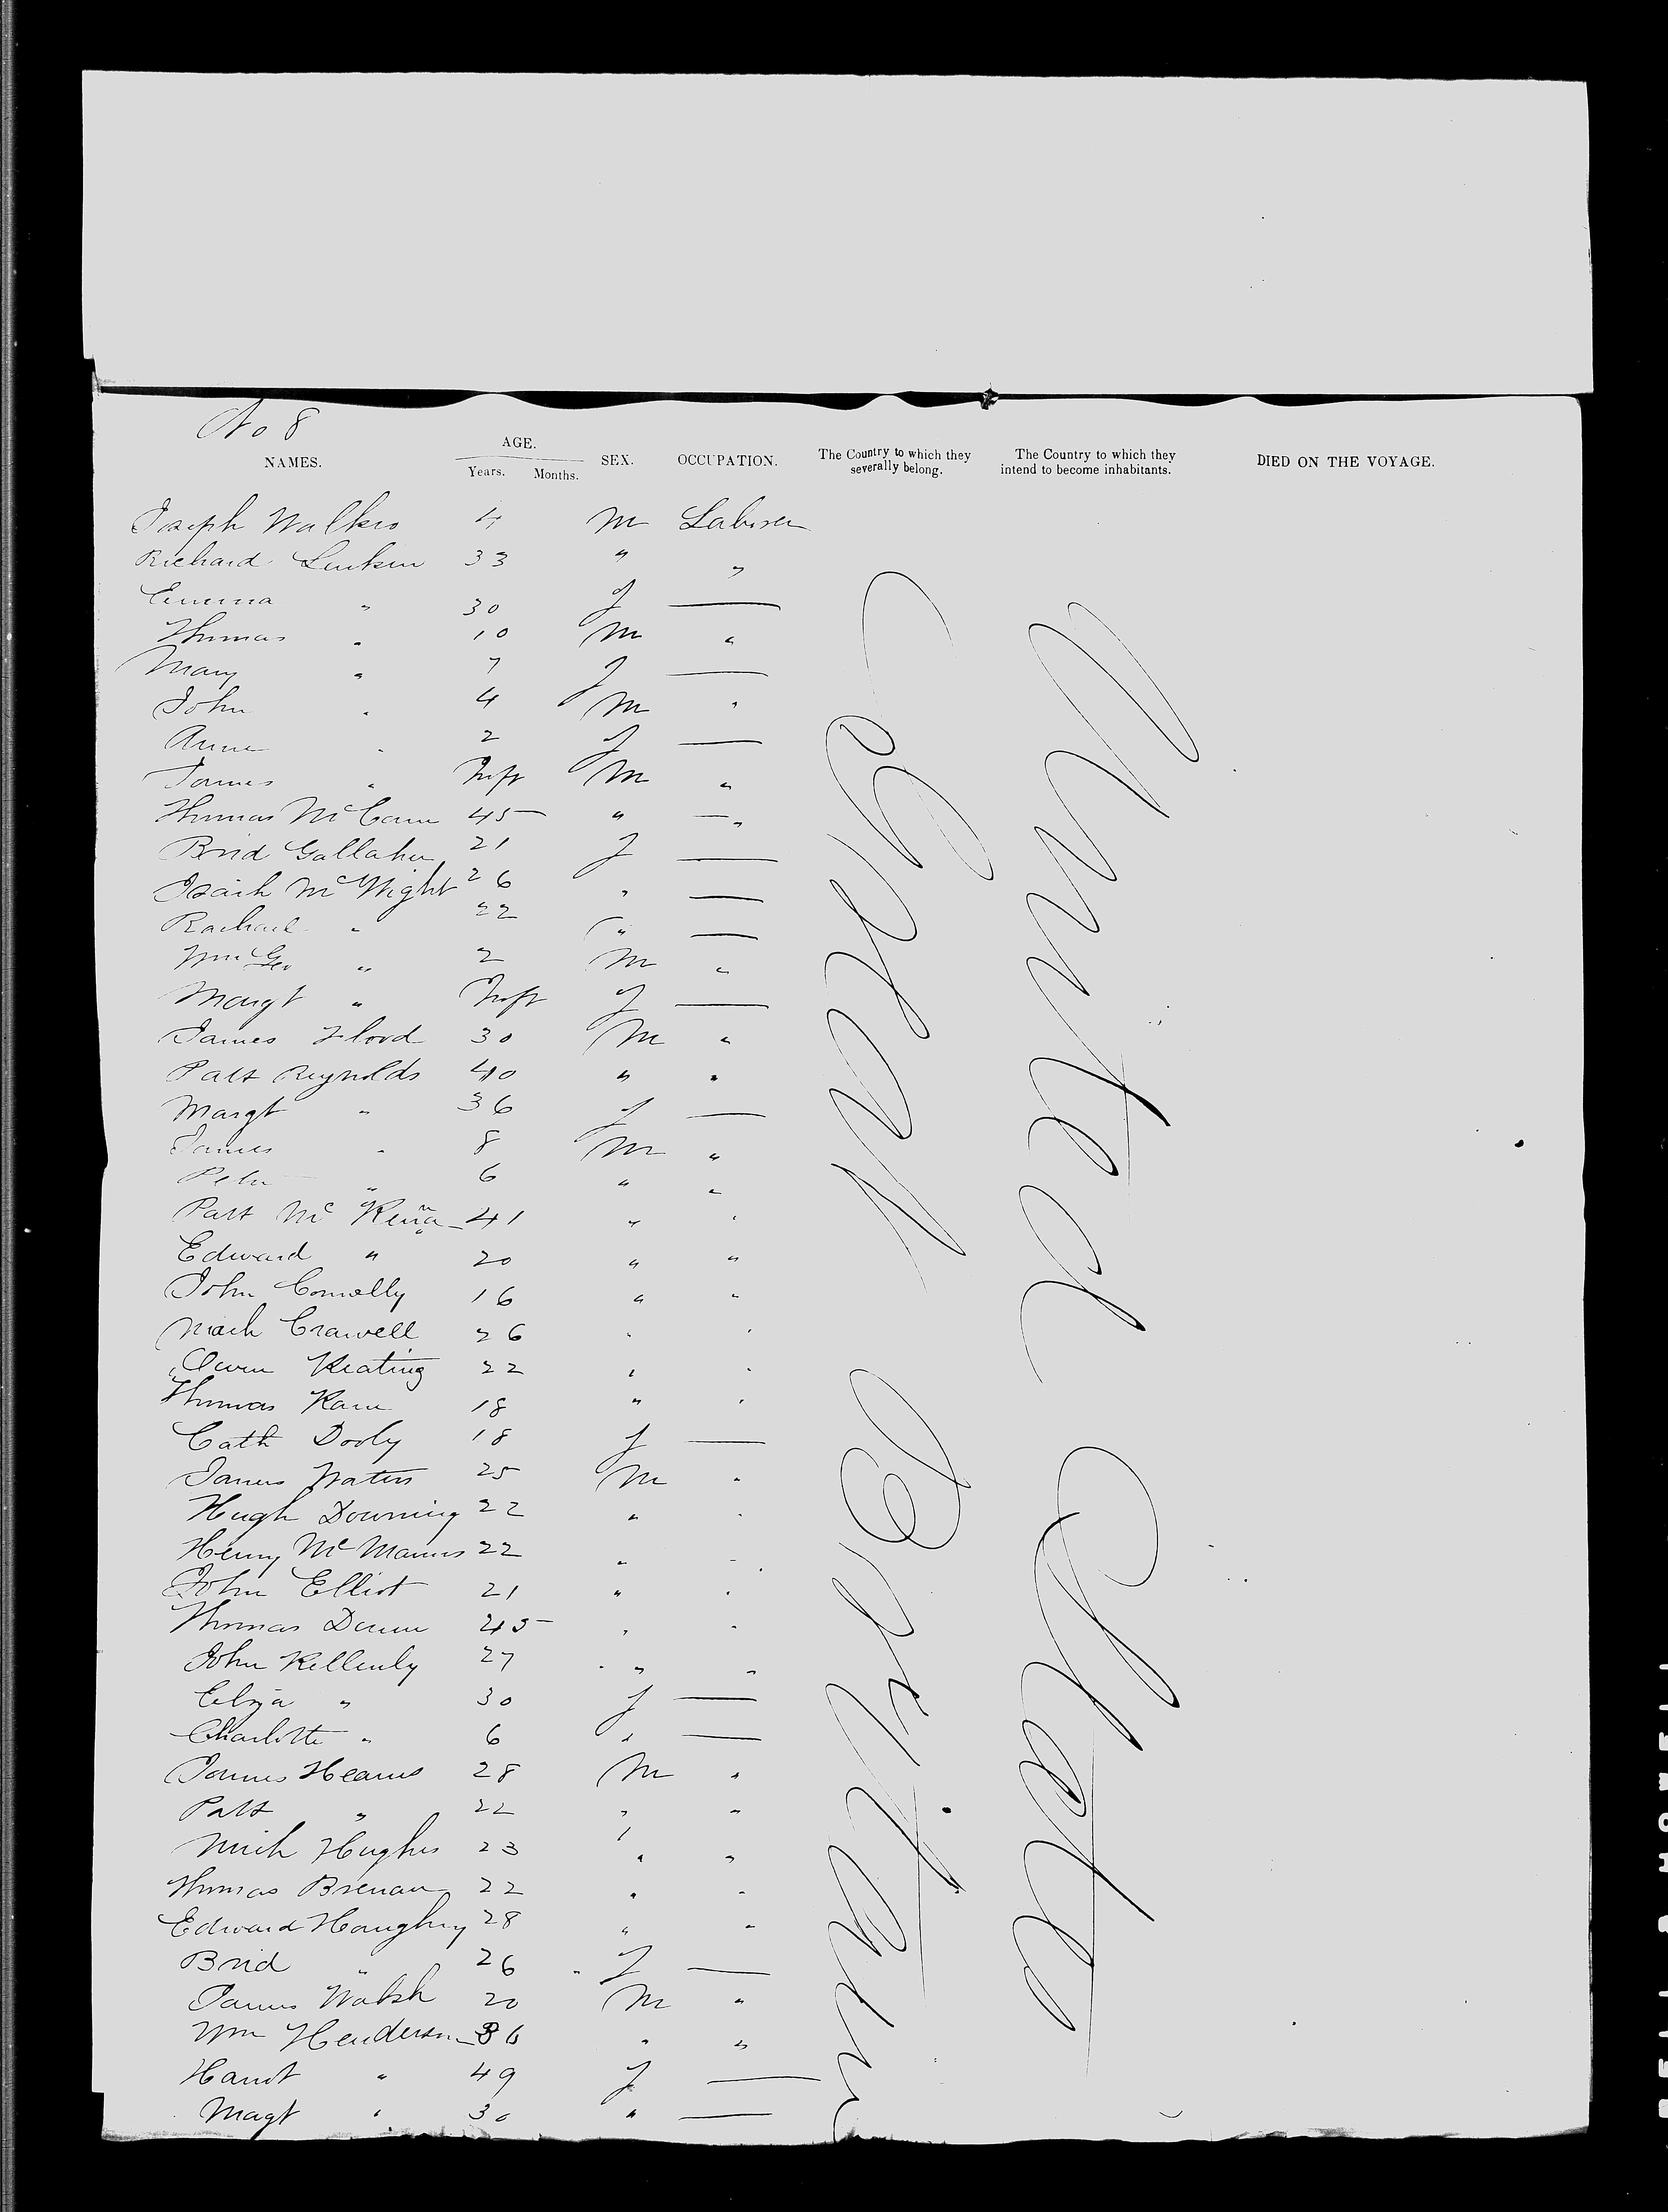 No 8
NAMES. AGE. Years. Months. SEX. OCCUPATION. The Country to which they severally belong. The Country to which they intend to become inhabitants. DIED ON THE VOYAGE.
Joseph Walker 4 M Labourer
Richard 33 " "
Emma " 30 f —
Thomas " 10 M "
Mary " 7 f —
John " 4 M "
Anne " 2 f —
James " Inft M "
Thomas McCann 45 " — "
Brid Gallaher 21 f —
Isaih McWight 26 " —
Rachael " 22 " —
Wm Geo " 2 M "
Margt " Inft f —
James Flood 30 M "
Patt Reynolds 40 " "
Margt " 36 f —
James " 8 M "
Peter " 6 " "
Patt McKena 41 " "
Edward " 20 " "
John Connolly 16 " "
Mich Crawell 26 " "
Owen Keating 22 " "
Thomas Kane 18 " "
Cath Dooly 18 f —
James Waters 25 M "
Hugh Downing 22 " "
Henry McManus 22 " "
John Elliot 21 " "
Thomas Dunn 45 " "
John Kellenly 27 " "
Eliza " 30 f —
Charlotte " 6 " —
James Hearns 28 M "
Patt " 22 " "
Mich Hughes 23 " "
Thomas Brenan 22 " "
Edward Haughey 28 " "
Brid " 26 f —
James Walsh 20 M "
Wm Henderson 36 " "
Harrit " 49 f —
Magt " 30 " —
Great Britain
United States